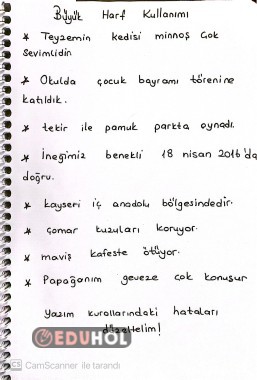 Büyük Harf Kullanımı
* Teyzemin kedisi minnoş çok
sevimlidir
* Okulda çocuk bayramı törenine
katıldık.
* tekir ile pamuk parkta oynadı.
* İneğimiz benekli 18 nisan 2016'da
doğru.
* kayseri iç anadolu bölgesindedir.
* çomar kuzuları koruyor.
* maviş kafeste ötüyor.
* Papağanım geveze çok konuşur
Yazım kurallarındaki hataları
düzeltelim!
EDUHOL
CS CamScanner ile tarandı